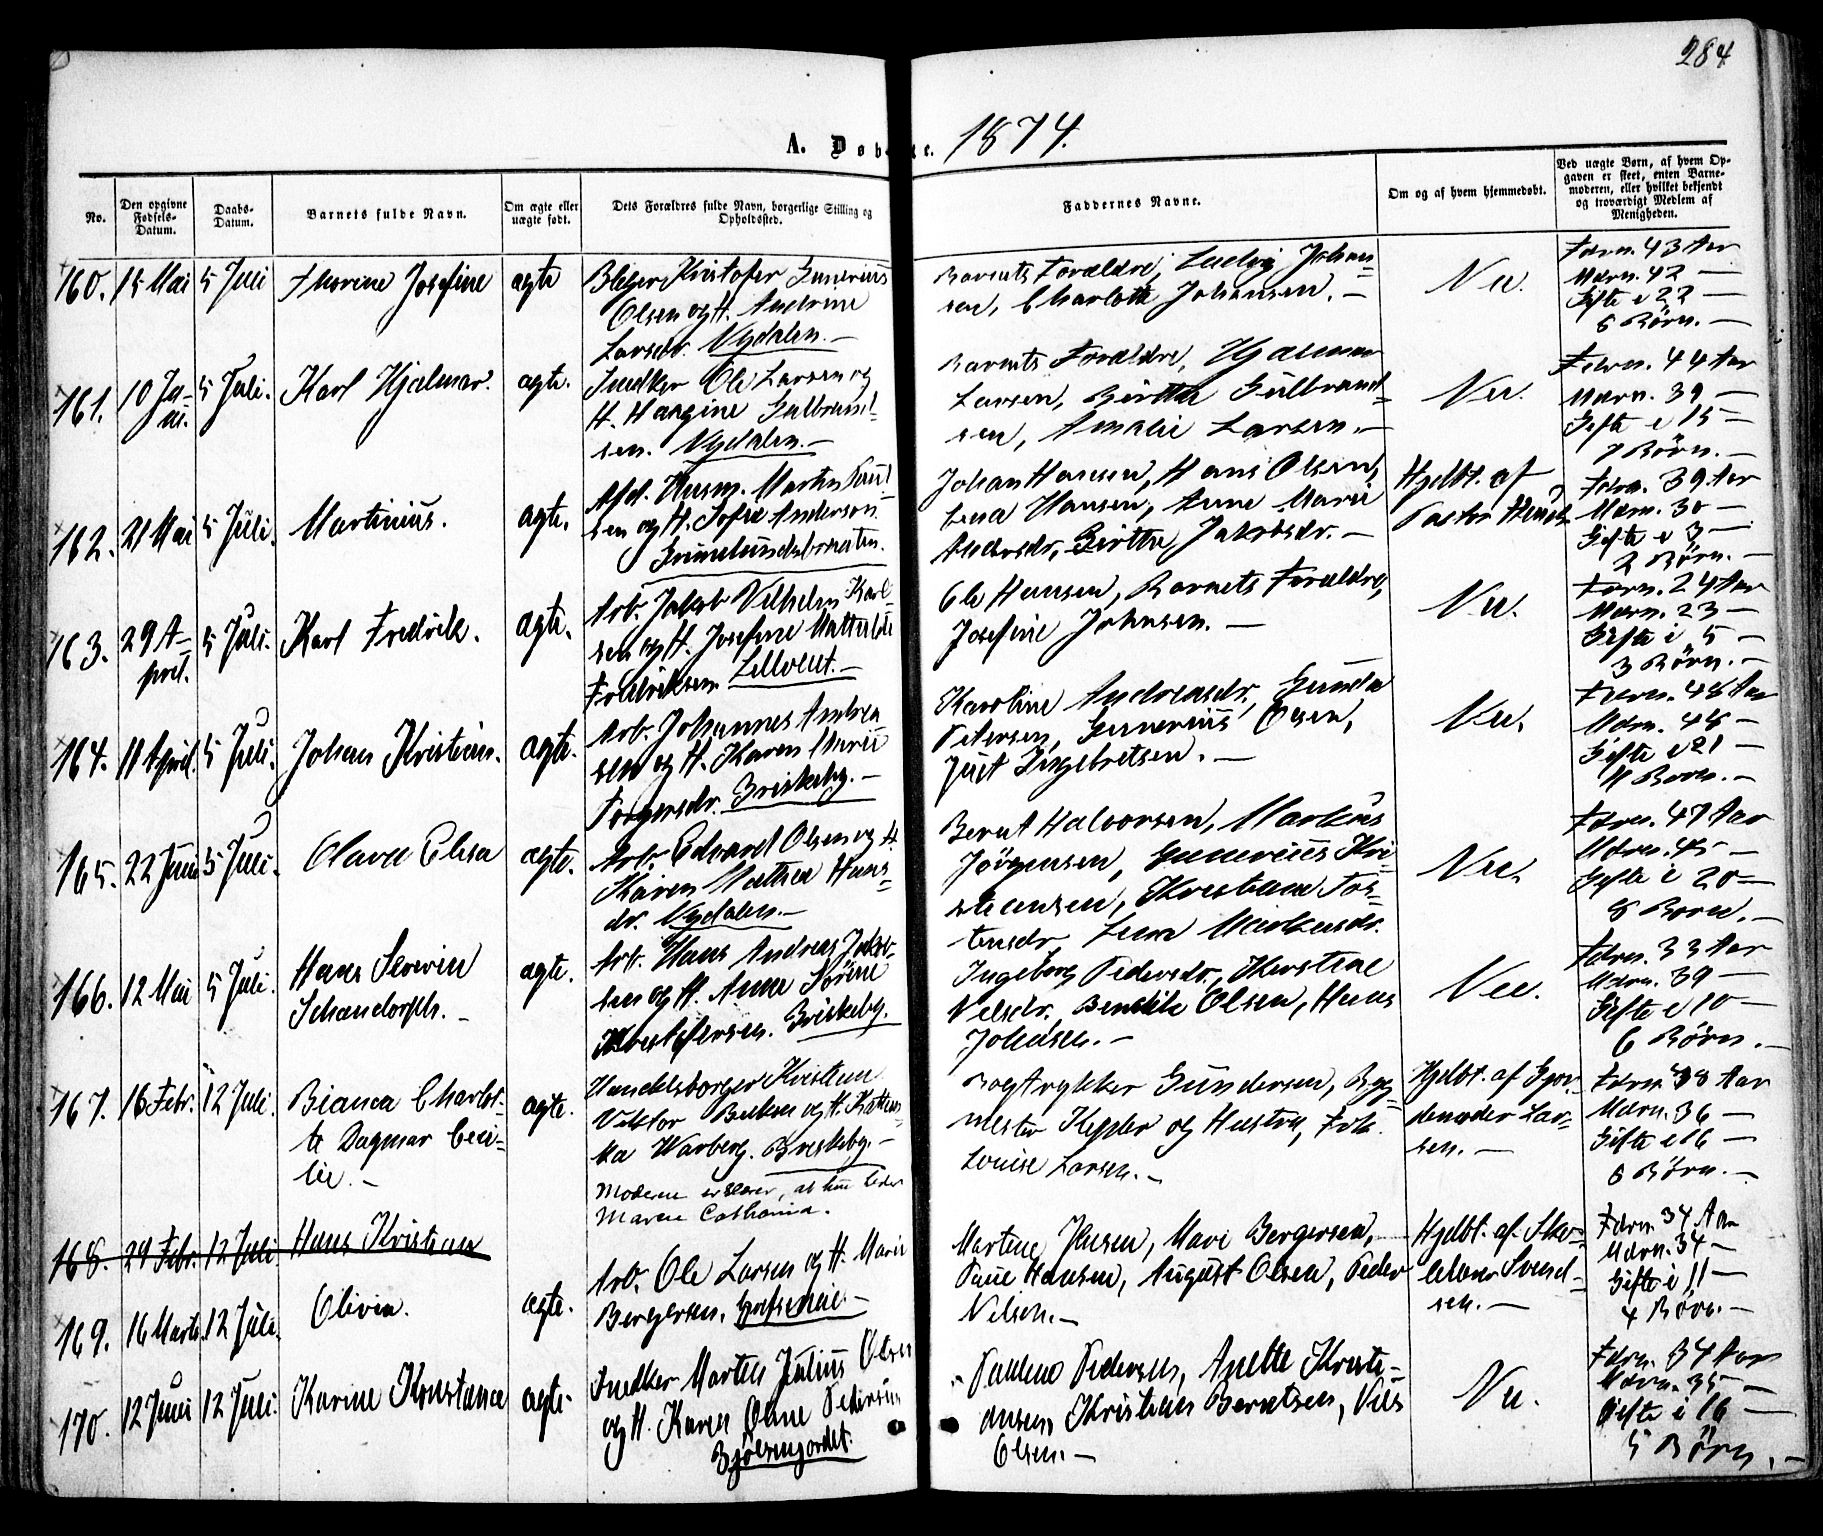 284
A. Døb e. 1874.
No.
Den opgivne
Fødsels-
Datum.
Daabs-
Datum.
Barnets fulde Navn.
Om ægte eller
uægte født.
Dets Forældres fulde Navn, borgerlige Stilling og
Opholdssted.
Faddernes Navne.
Om og af hvem hjemmedøbt.
Ved uægte Børn, af hvem Op-
gaven er skeet, enten Barne-
moderen, eller hvilket bekjendt
og troværdigt Medlem af
Menigheden.
160. 15 Mai 5 Juli Thorine Josefine ægte
Kristofer Gunerius
Olsen og H. Andrine
Larsdr. Nydalen. —
Barnets Forældre, Ludvig Johan-
sen, Charlotte Johansen. —
Nei.
Fdrn. 43 Aar
Mdrn. 42 —
Gifte i 22 —
8 Børn. —
161. 10 Ja-
5 Juli. Karl Hjalmar. ægte.
Snedker Ole Larsen og
H. Gulbrand-
sen. Nydalen. —
Barnets Forældre, Hjalmar
Larsen, Birthe Gulbrand-
sen, Amalie Larsen. —
Nei.
Fdrn. 44 Aar
Mdrn. 39 —
Gifte i 15 —
7 Børn. —
162. 21 Mai 5 Juli. Martinius. ægte.
Husm. Martin Paul-
sen og H. Sofie Anderson
Johan Hansen, Hans Olsen,
Lena Hansen, Anne Marie
Andersdr, Birthe Jakobsdr. —
Hjdbt. af
Pastor
Fdrn. 39 Aar
Mdrn. 30 —
Gifte i 3 —
2 Børn. —
163. 29 A-
pril. 5 Juli. Karl Fredrik. ægte.
Arb. Jakob Vilhelm Karl-
sen og H. Josefine Mathilde
Fredriksen
Ole Hansen, Barnets Forældre,
Josefine Johnsen. —
Nei.
Fdrn. 24 Aar
Mdrn. 23 —
Gifte i 5 —
3 Børn. —
164. 11 April. 5 Juli. Johan Kristian. ægte.
Arb. Johannes Andrea
sen og H. Karen Marie
Torgersdr. Briskeby. —
Karoline Andreasdr, Gunda
Petersen, Gunerius Olsen,
Just Ingebretsen. —
Nei.
Fdrn. 48 Aar
Mdrn. 48 —
Gifte i 21 —
11 Børn. —
165. 22 Juni 5 Juli. Olava Elisa ægte.
Arb. Edvard Olsen og H.
Karen Mathea Hans-
dr. Nydalen. —
Bernt Halvorsen, Markus
Jörgensen, Gunerius Kri-
stiansen, Kristiane Tos-
tensdr, Lina Markusdr.
Nei.
Fdrn. 47 Aar
Mdrn. 45 —
Gifte i 20 —
8 Børn. —
166. 12 Mai 5 Juli. Hans Severin
Schandorph. — ægte.
Arb. Hans Andreas Jakob-
sen og H. Anne Sörine
Kristofersen. Briskeby.
Ingeborg Pedersdr, Kirstine
Nilsdr, Bendik Olsen, Hans
Johansen. —
Nei.
Fdrn. 33 Aar
Mdrn. 39 —
Gifte i 10 —
6 Børn. —
167. 16 Febr. 12 Juli. Bianca Charlot-
te Dagmar Ceci-
lie. — ægte.
Handelsborger Kristian
Viktor og H. Katten-
ka Warberg. Briskeby. —
Moderen erklærer, at hun heder
Maren Cathrina.
Bogtrykker Gundersen, Byg-
mester Kepler og Hustru, Frk.
Louise Larsen. —
Hjdbt. af Gjor-
demoder Lar-
sen. —
Fdrn. 38 Aar
Mdrn. 36 —
Gifte i 16 —
8 Børn. —
168. 29 Febr. 12 Juli. Hans Kristian
169. 16 Marts. 12 Juli. Olivia. ægte.
Arb. Ole Larsen og H. Marie
Bergersen.
Martine Jensen, Mari Bergersen,
Hansen, August Olsen, Peder
Nilsen. —
Hjdbt. af Sko-
Svend-
sen. —
Fdrn. 34 Aar
Mdrn. 34 —
Gifte i 11 —
4 Børn. —
170. 12 Juni 12 Juli. Karine Konstance ægte.
Snedker Martin Julius Olsen
og H. Karen Oline Pedersen
Bjölsenjordet.
Pauline Pedersen, Anette Kristi-
ansen, Kristian Berntsen, Nils
Olsen. —
Nei.
Fdrn. 34 Aar
Mdrn. 35 —
Gifte i 16 —
5 Børn. —